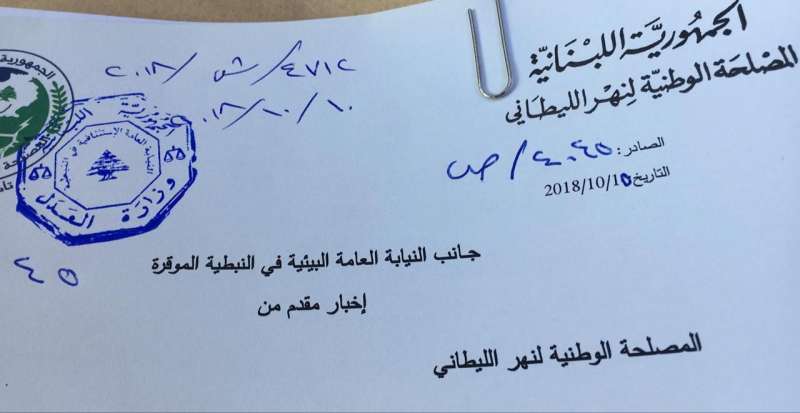 الجمهورية اللبنانية
المصلحة الوطنية لنهر الليطاني
الصادر: ٤٠٤٥/ص
التاريخ 2018/10/10
٤٧١٢/ش/٢٠١٨
١٠/١٠/٢٠١٨
الجمهورية اللبنانية
النيابة العامة الإستئنافية في النبطية
وزارة العدل
الجمهورية
٤٥
جانب النيابة العامة البيئية في النبطية الموقرة
إخبار مقدم من
المصلحة الوطنية لنهر الليطاني